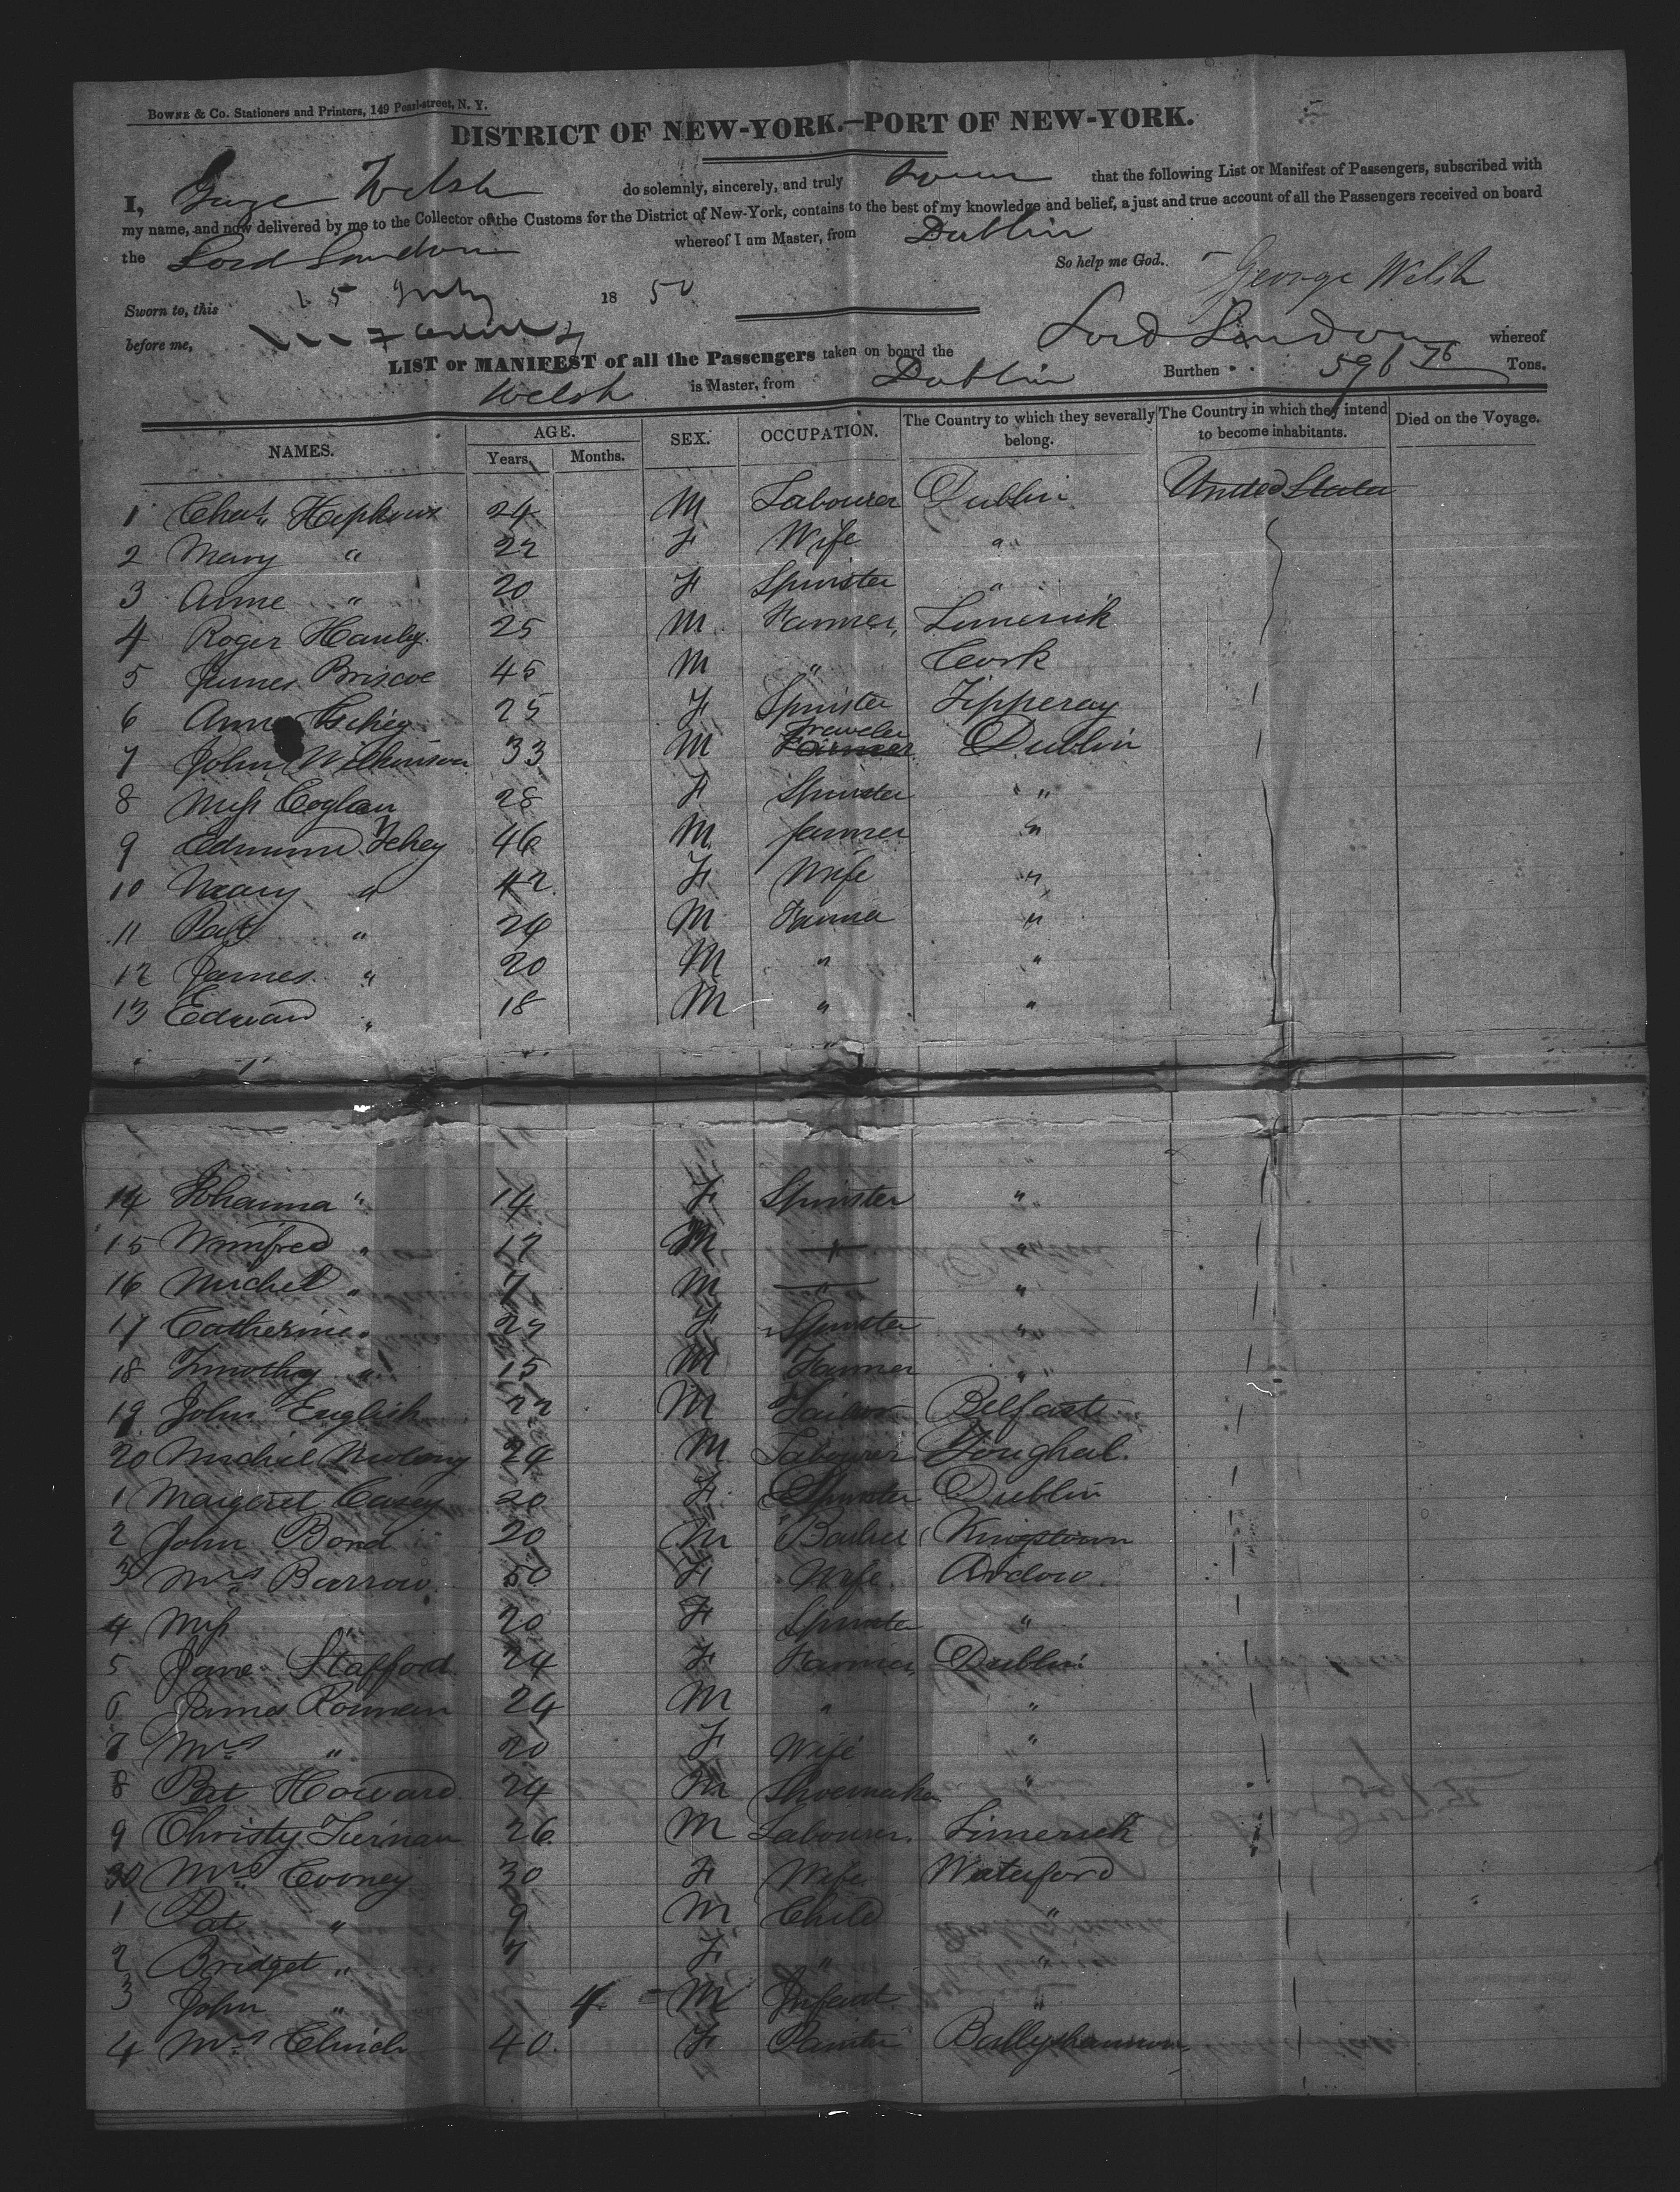 BOWNE & Co. Stationers and Printers, 149 Pearl-street, N. Y.
DISTRICT OF NEW-YORK.—PORT OF NEW-YORK.
I, George Welsh do solemnly, sincerely, and truly Swear that the following List or Manifest of Passengers, subscribed with
my name, and now delivered by me to the Collector of the Customs for the District of New-York, contains to the best of my knowledge and belief, a just and true account of all the Passengers received on board
the Lord Sandon whereof I am Master, from Dublin
So help me God. George Welsh
Sworn to, this 15 July 1850
before me,
LIST or MANIFEST of all the Passengers taken on board the Lord Sandon whereof
Welsh is Master, from Dublin Burthen 596 76 Tons.
NAMES. AGE. Years, Months. SEX. OCCUPATION. The Country to which they severally belong. The Country in which they intend to become inhabitants. Died on the Voyage.
1 Chas. Hopkins 24 M Labourer Dublin United States
2 Mary " 22 F Wife "
3 Anne " 20 F Spinster "
4 Roger Hanly 25 M Farmer, Limerick
5 James Briscoe 45 M " Cork
6 Anne 25 F Spinster Tipperay
7 John Wilkinson 33 M Farmer Jeweler Dublin
8 Miss Coglan 28 F Spinster "
9 Edmund Fehey 46 M farmer "
10 Mary " 42 F Wife "
11 Pat " 24 M Farmer "
12 James " 20 M " "
13 Edward " 18 M " "
14 Johanna " 14 F Spinster "
15 Winifred " 12 M "
16 Michel " 7 M " "
17 Catherine " F Spinster "
18 Timothy " 15 M Farmer "
19 John English 22 M Tailor Belfast
20 Michel 24 M Labourer Youghal.
1 Margaret Casey 20 F Spinster Dublin
2 John Bond 20 M Barber Kingstown
3 Mrs Barrow 50 F Wife Arclow
4 Miss " 20 F Spinster "
5 Jane Stafford 24 F Farmer Dublin
6 James Ronnan 24 M " "
7 Mrs " 20 F Wife "
8 Pat Howard 24 M Shoemaker "
9 Christy Tiernan 26 M Labourer. Limerick
30 Mrs Cooney 30 F Wife Waterford
1 Pat " 9 M Child "
2 Bridget " 7 F " "
3 John " 4 M Infant "
4 Mrs Clinch 40 F Ballyshannon